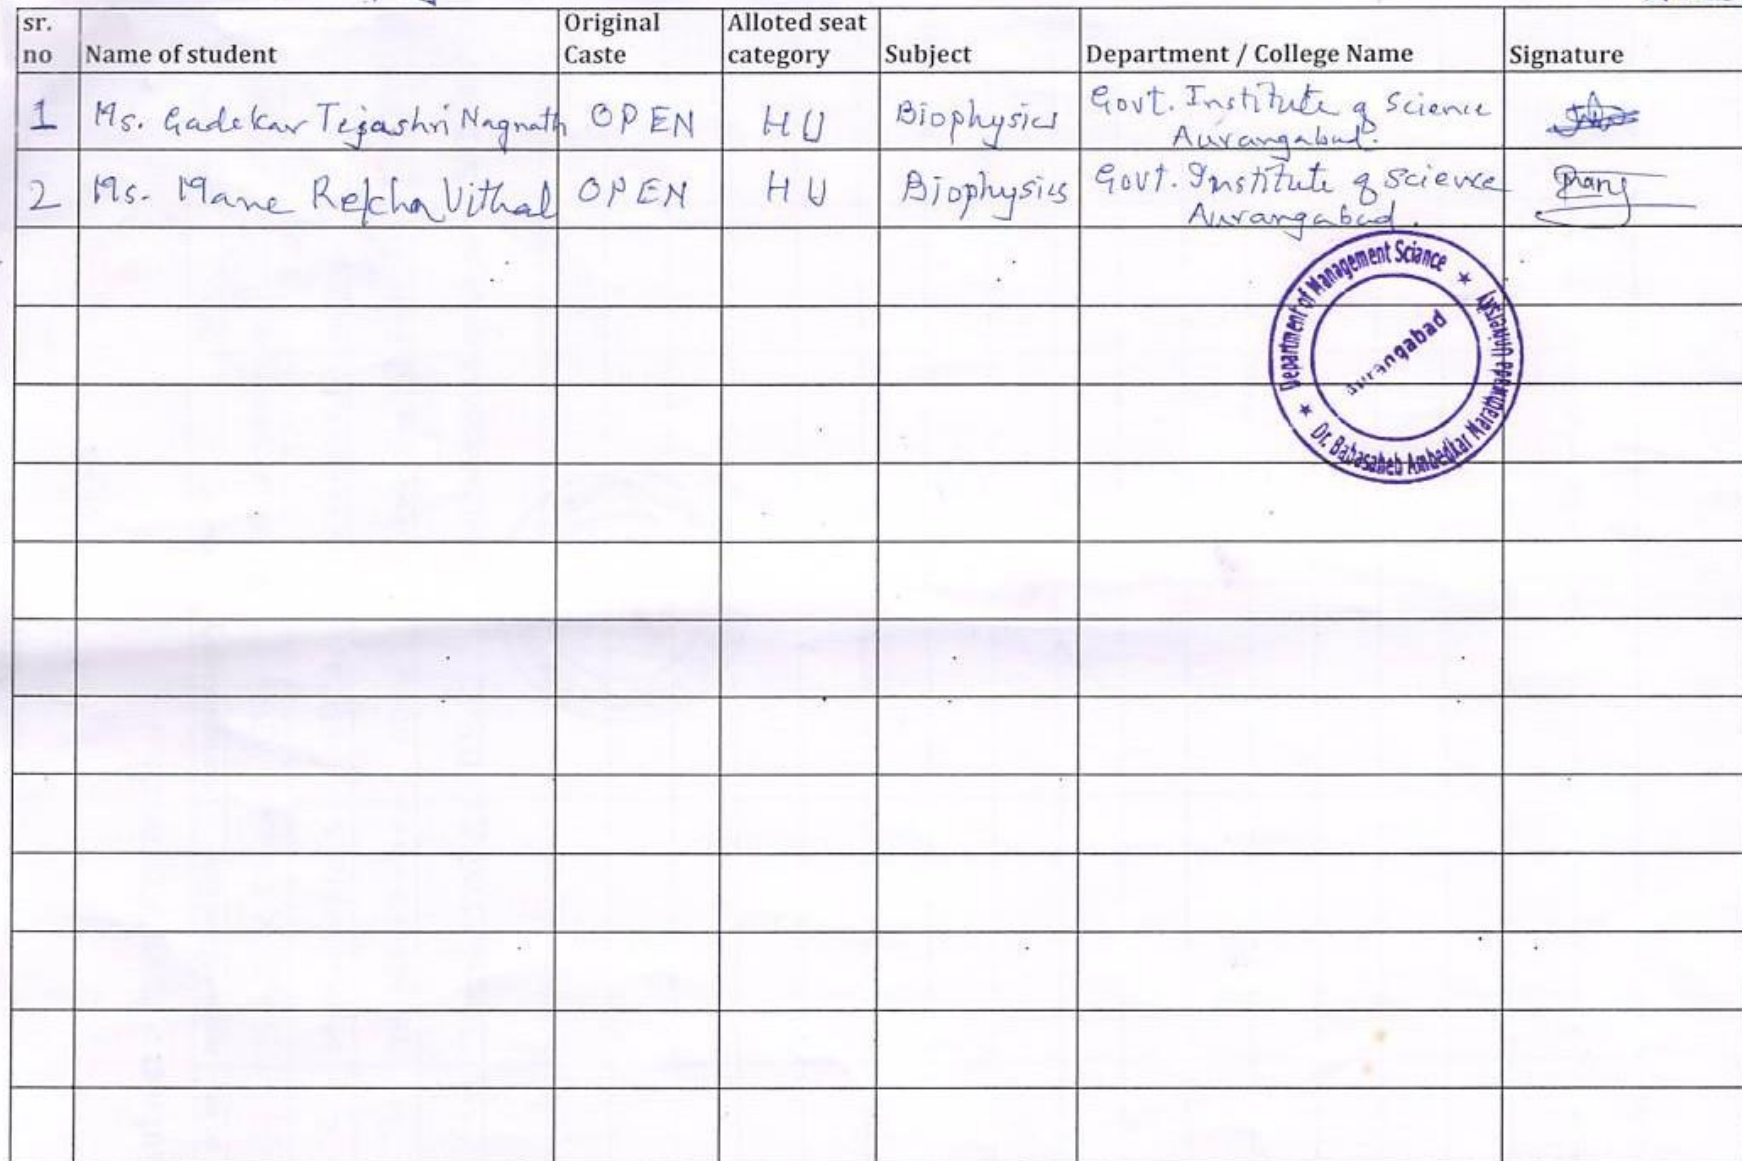 sr. no Name of student Original Caste Alloted seat category Subject Department / College Name Signature
1 Ms. Gadekar Tejashri Nagnath OPEN HU Biophysics Govt. Institute of Science Aurangabad.
2 Ms. Mane Rekha Vithal OPEN HU Biophysics Govt. Institute of science Aurangabad.
Department of Management Sciance
Aurangabad
Dr. Babasaheb Ambedkar Marathwada University